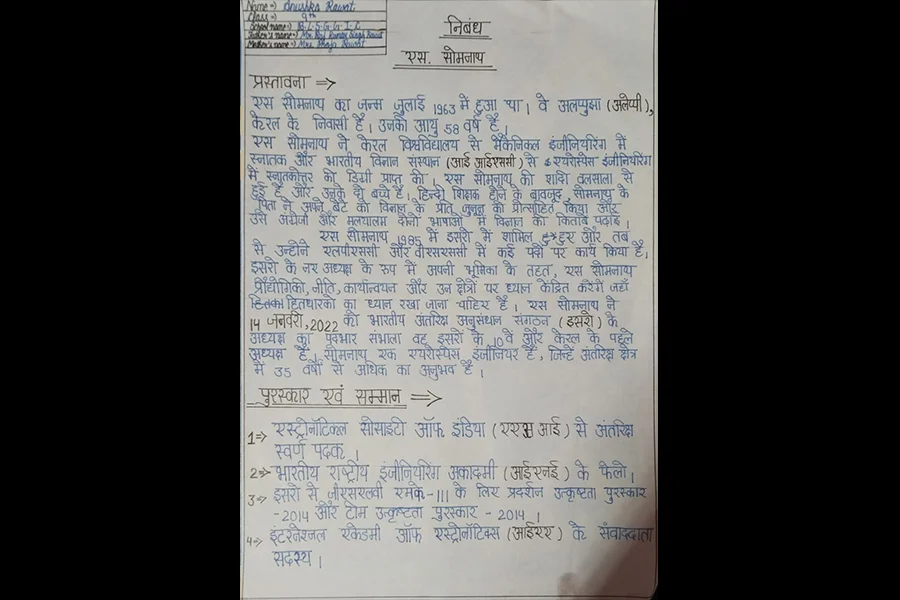 Name => Anushka Rawat
Class => 9th
School name => B. L. S. G. G. I. C
Father's name => Mr. Raj Kumar Singh Rawat
Mother's name => Mrs. Pooja Rawat
निबंध
एस. सोमनाथ
प्रस्तावना =>
एस सोमनाथ का जन्म जुलाई 1963 में हुआ था। वे अलप्पुझा (अलेप्पी),
केरल के निवासी हैं। उनकी आयु 58 वर्ष है।
एस सोमनाथ ने केरल विश्वविद्यालय से मैकेनिकल इंजीनियरिंग में
स्नातक और भारतीय विज्ञान संस्थान (आई आईएससी) से एयरोस्पेस इंजीनियरिंग
में स्नातकोत्तर की डिग्री प्राप्त की। एस सोमनाथ की शादी वलसाला से
हुई है और उनके दो बच्चे हैं। हिन्दी शिक्षक होने के बावजूद, सोमनाथ के
पिता ने अपने बेटे की विज्ञान के प्रति जुनून को प्रोत्साहित किया और
उसे अंग्रेजी और मलयालम दोनों भाषाओं में विज्ञान की किताबें पढ़ाई।
एस सोमनाथ 1985 में इसरो में शामिल हुए और तब
से उन्होंने एलपीएससी और वीएसएससी में कई पदों पर कार्य किया है,
इसरो के नए अध्यक्ष के रूप में अपनी भूमिका के तहत, एस सोमनाथ
प्रौद्योगिकी, नीति, कार्यान्वयन और उन क्षेत्रों पर ध्यान केंद्रित करेंगे जहाँ
हितधारकों का ध्यान रखा जाना चाहिए है। एस सोमनाथ ने
14 जनवरी, 2022 को भारतीय अंतरिक्ष अनुसंधान संगठन (इसरो) के
अध्यक्ष का पदभार संभाला वह इसरो के 10वें और केरल के पहले
अध्यक्ष हैं। सोमनाथ एक एयरोस्पेस इंजीनियर हैं, जिन्हें अंतरिक्ष क्षेत्र
में 35 वर्षों से अधिक का अनुभव है।
पुरस्कार एवं सम्मान =>
1=> एस्ट्रोनॉटिकल सोसाइटी ऑफ इंडिया (एएसआई) से अंतरिक्ष
स्वर्ण पदक।
2=> भारतीय राष्ट्रीय इंजीनियरिंग अकादमी (आईएनई) के फेलो।
3=> इसरो से जीएसएलवी एमके-III के लिए प्रदर्शन उत्कृष्टता पुरस्कार
-2014 और टीम उत्कृष्टता पुरस्कार - 2014।
4=> इंटरनेशनल एकेडमी ऑफ एस्ट्रोनॉटिक्स (आईएए) के संवाददाता
सदस्य।